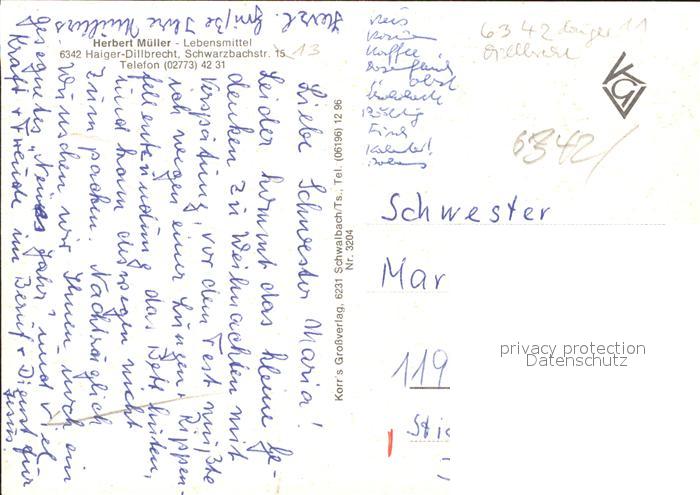 Herbert Müller - Lebensmittel
6342 Haiger-Dillbrecht, Schwarzbachstr. 15
13
Telefon (02773) 42 31
Liebe Schwester Maria!
Leider kommt das kleine Ge-
denken zu Weihnachten mit
Verspätung, vor dem Fest mußte
ich wegen einer Lungen + Rippen-
fellentzündung das Bett hüten,
und kam deswegen nicht
zum packen. Nachträglich
wünschen wir Ihnen noch ein
gesegnetes "Neues Jahr" und viel
Kraft + Freude im Beruf + Dienst für
Jesus!
Herzl. Grüße Ihre Müllers
Korr's Großverlag, 6231 Schwalbach/Ts., Tel. (06196) 12 96
Nr. 3204
Reis
Kaffee
Obst
6342
11
Dillbrecht
KGV
6342/
Schwester
Mar
119
Sti
privacy protection
Datenschutz